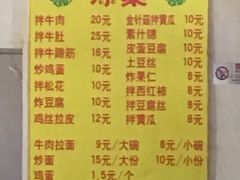 凉菜
拌牛肉 20元 金针菇拌黄瓜 10元
拌牛肚 25元 素什锦 10元
拌牛蹄筋 16元 皮蛋豆腐 10元
炒鸡蛋 10元 土豆丝 8元
拌松花 10元 炸果仁 8元
炸豆腐 10元 拌西红柿 8元
鸡丝拉皮 12元 拌豆腐丝 8元
拌黄瓜 8元
牛肉拉面 9元/大碗 8元/小碗
炒面 15元/大份 10元/小份
鸡蛋 1.5元/个